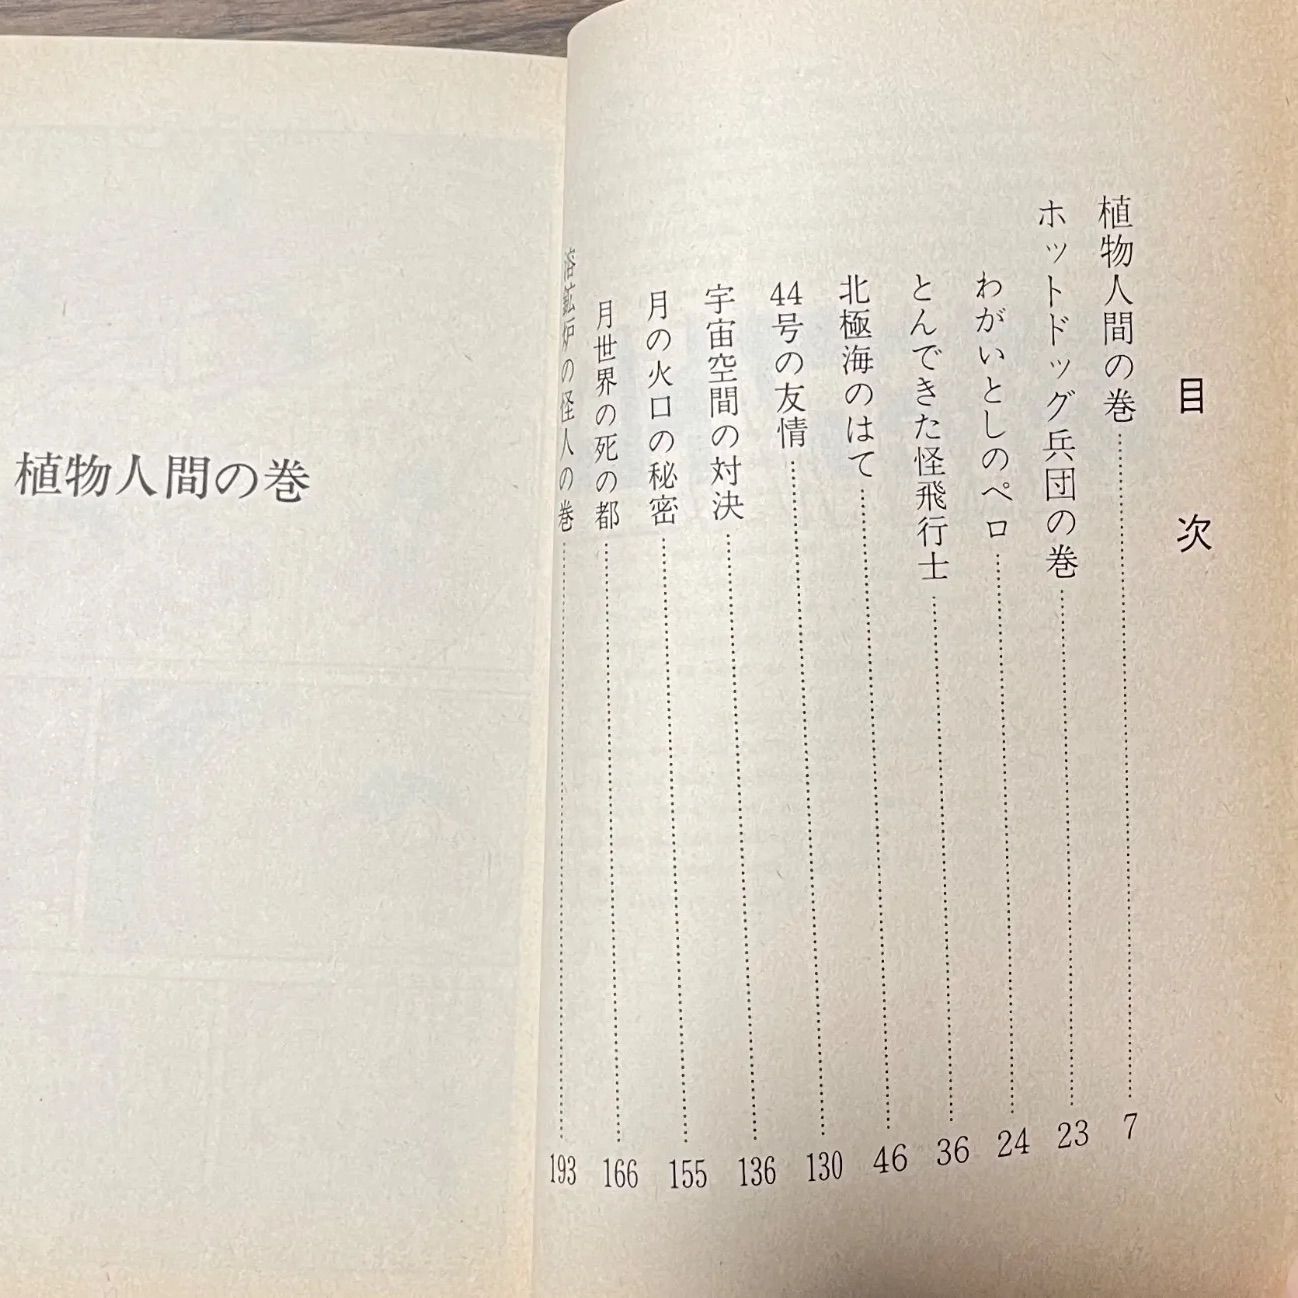 目次
植物人間の巻……………7
ホットドッグ兵団の巻……………23
わがいとしのペロ……………24
とんできた怪飛行士……………36
北極海のはて……………46
44号の友情……………130
宇宙空間の対決……………136
月の火口の秘密……………155
月世界の死の都……………166
溶鉱炉の怪人の巻……………193
植物人間の巻